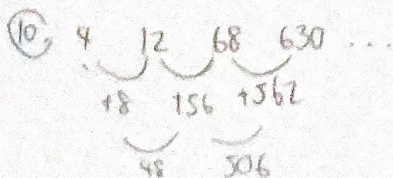 10. 4 12 68 630 ...
+8 +56 +562
48 506